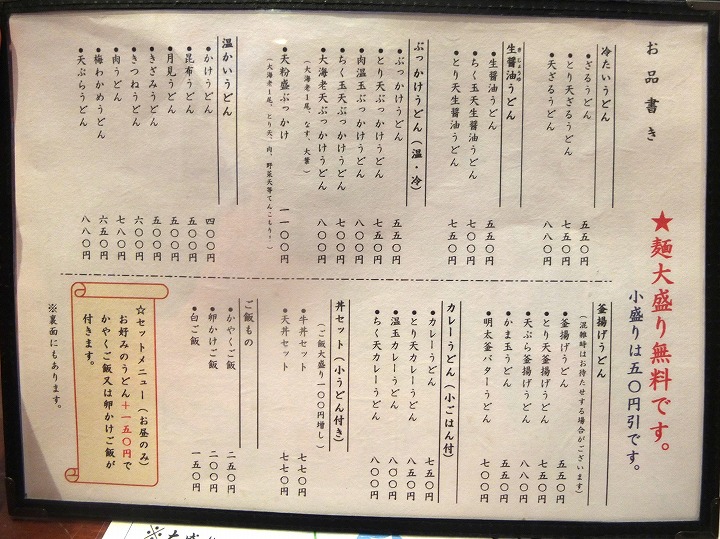 お品書き
★麺大盛り無料です。
小盛りは五〇円引です。
冷たいうどん
・ざるうどん 五五〇円
・とり天ざるうどん 七五〇円
・天ざるうどん 八八〇円
生醤油うどん
き じょうゆ
・生醤油うどん 五五〇円
・ちく玉天生醤油うどん 七〇〇円
・とり天生醤油うどん 七五〇円
ぶっかけうどん(温・冷)
・ぶっかけうどん 五五〇円
・とり天ぶっかけうどん 七五〇円
・肉温玉ぶっかけうどん 八〇〇円
・ちく玉天ぶっかけうどん 七〇〇円
・大海老天ぶっかけうどん 八〇〇円
(大海老1尾、なす、大葉)
・天粉盛ぶっかけ 一一〇〇円
(大海老1尾、とり天、肉、野菜天等てんこもり!)
温かいうどん
・かけうどん 四〇〇円
・昆布うどん 五〇〇円
・月見うどん 五〇〇円
・きざみうどん 五〇〇円
・きつねうどん 六〇〇円
・肉うどん 七八〇円
・梅わかめうどん 六五〇円
・天ぷらうどん 八八〇円
釜揚げうどん
(混雑時はお待たせする場合がございます)
・釜揚げうどん 五五〇円
・とり天釜揚げうどん 七五〇円
・天ぷら釜揚げうどん 八八〇円
・かま玉うどん 五五〇円
・明太釜バターうどん 七〇〇円
カレーうどん(小ごはん付)
・カレーうどん 七五〇円
・とり天カレーうどん 八五〇円
・温玉カレーうどん 八〇〇円
・ちく天カレーうどん 八〇〇円
丼セット(小うどん付き)
(ご飯大盛り一〇〇円増し)
・牛丼セット 七七〇円
・天丼セット 七七〇円
ご飯もの
・かやくご飯 二五〇円
・卵かけご飯 二〇〇円
・白ご飯 一五〇円
☆セットメニュー(お昼のみ)
お好みのうどん+一五〇円で
かやくご飯又は卵かけご飯が
付きます。
※裏面にもあります。